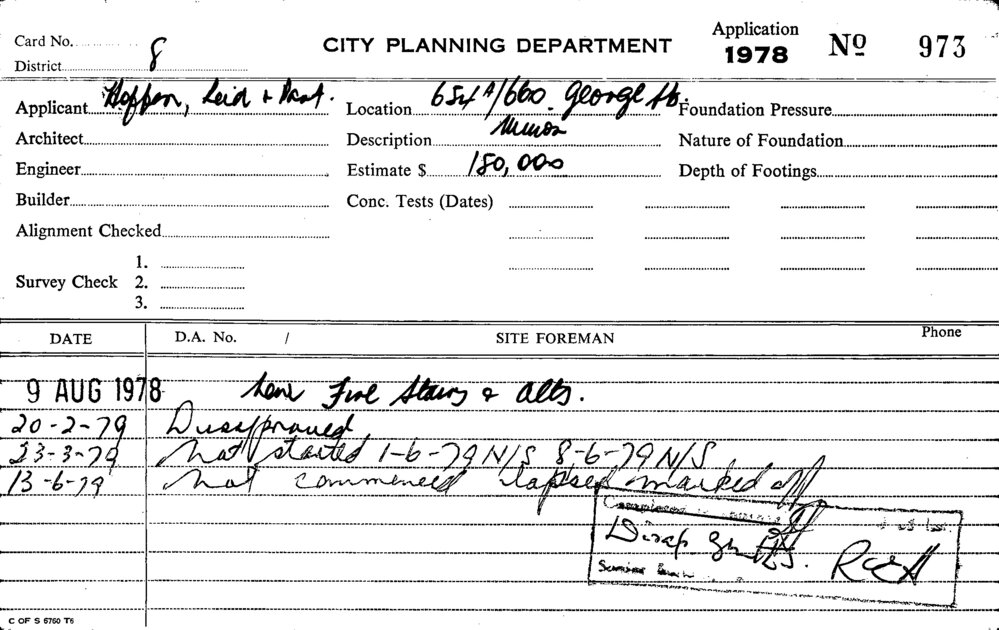 Card No.
CITY PLANNING DEPARTMENT
Application
1978
No 973
District 8
Applicant
Location 654A/660 George St.
Foundation Pressure
Architect
Description
Nature of Foundation
Engineer
Estimate $ 180,000
Depth of Footings
Builder
Conc. Tests (Dates)
Alignment Checked
Survey Check
1.
2.
3.
DATE
D.A. No. /
SITE FOREMAN
Phone
9 AUG 1978 New Fire Stairs & Alts.
20-2-79 Disapproved
23-3-79 Not started 1-6-79 N/S 8-6-79 N/S
13-6-79 Not commenced lapsed marked off
C OF S 6760 T6